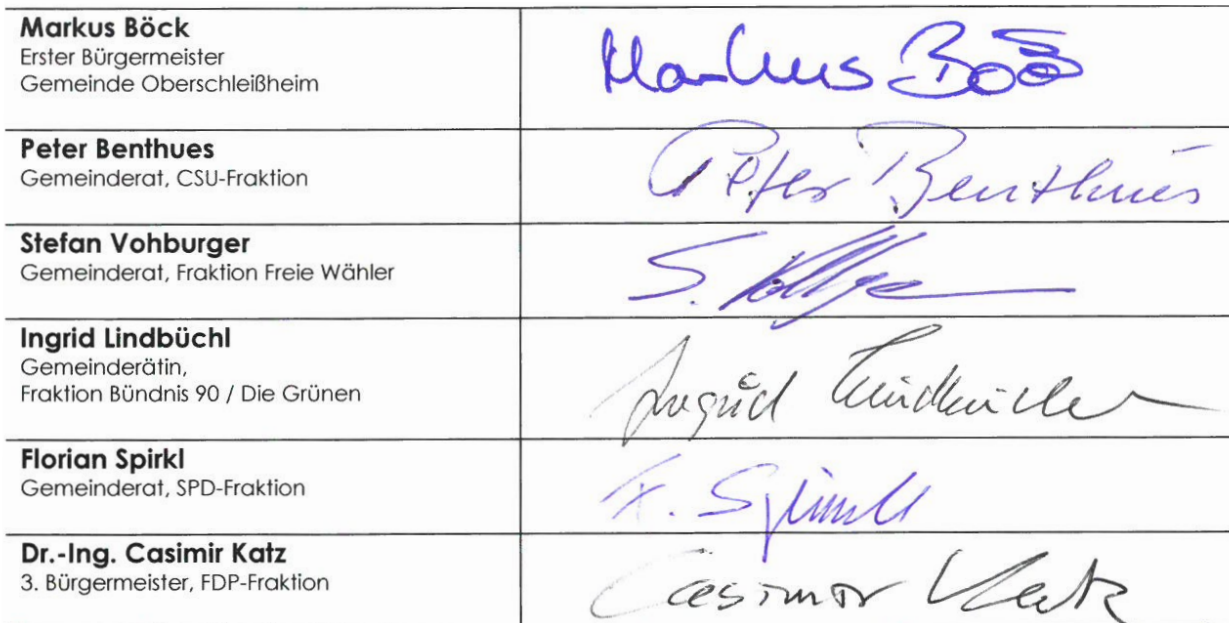 Markus Böck
Erster Bürgermeister
Gemeinde Oberschleißheim
Markus Böck
Peter Benthues
Gemeinderat, CSU-Fraktion
Peter Benthues
Stefan Vohburger
Gemeinderat, Fraktion Freie Wähler
S.
Ingrid Lindbüchl
Gemeinderätin,
Fraktion Bündnis 90 / Die Grünen
Ingrid Lindbüchl
Florian Spirkl
Gemeinderat, SPD-Fraktion
F. Spirkl
Dr.-Ing. Casimir Katz
3. Bürgermeister, FDP-Fraktion
Casimir Katz